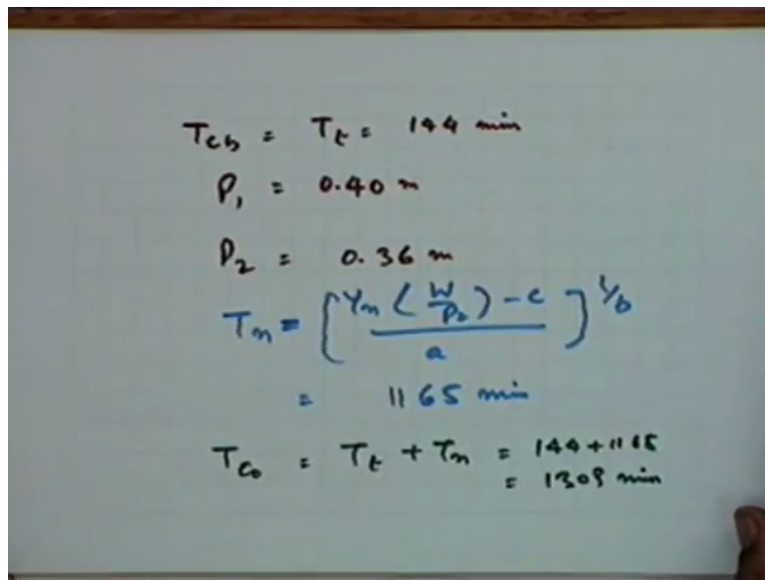 Tcb = Tt = 144 min
P1 = 0.40 m
P2 = 0.36 m
Tn = [ (Yn (W/P2) - c) / a ]^1/b
= 1165 min
Tco = Tt + Tn = 144 + 1165
= 1309 min